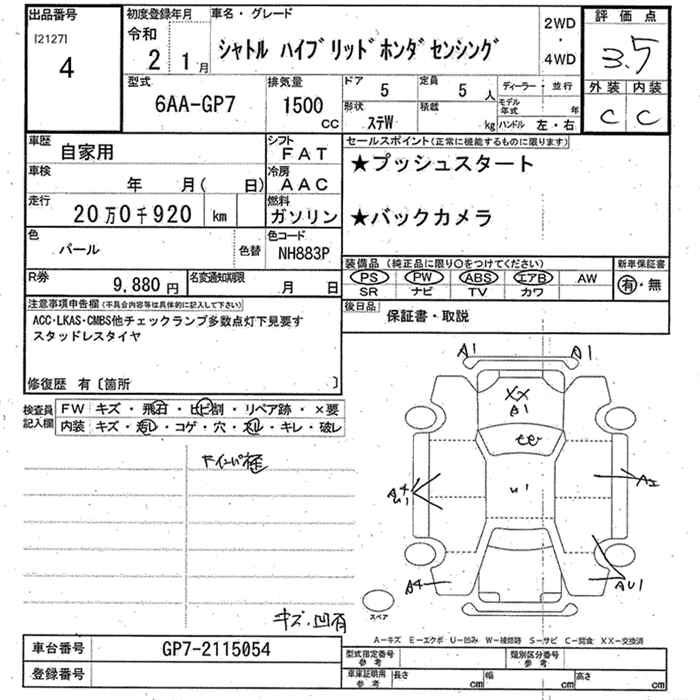 出品番号
[2127]
4
初度登録年月
令和
2
1月
車名・グレード
シャトル ハイブリッド ホンダセンシング
2WD
・
4WD
評価点
3.5
外装
内装
C
C
型式
6AA-GP7
排気量
1500
CC
ドア
5
定員
5
人
形状
ステW
積載
kg
ディーラー・並行
モデル年式
年
ハンドル
左・右
車歴
自家用
シフト
FAT
車検
年 月( 日)
冷房
AAC
走行
20万0千920
km
燃料
ガソリン
色
パール
色替
色コード
NH883P
R券
9,880 円
名変通知期限
月 日
セールスポイント(正常に機能するものに限ります)
★プッシュスタート
★バックカメラ
装備品(純正品に限り○をつけてください)
PS PW ABS エアB AW
SR ナビ TV カワ
新車保証書
有・無
後日品
保証書・取説
注意事項申告欄(不具合内容等は具体的に記入して下さい)
ACC・LKAS・CMBS他チェックランプ多数点灯下見要す
スタッドレスタイヤ
修復歴 有〔箇所 〕
検査員記入欄
FW キズ・飛石・ヒビ割・リペア跡・×要
内装 キズ・汚レ・コゲ・穴・スレ・キレ・破レ
キズ・凹有
A1
A1
XX
A1
U1
A4
U1
A4
AU1
スペア
A−キズ E−エクボ U−凹み W−補修跡 S−サビ C−腐食 XX−交換済
車台番号
GP7-2115054
登録番号
型式指定番号
参考
類別区分番号
参考
車庫証明用
参考
長さ
cm
幅
cm
高さ
cm